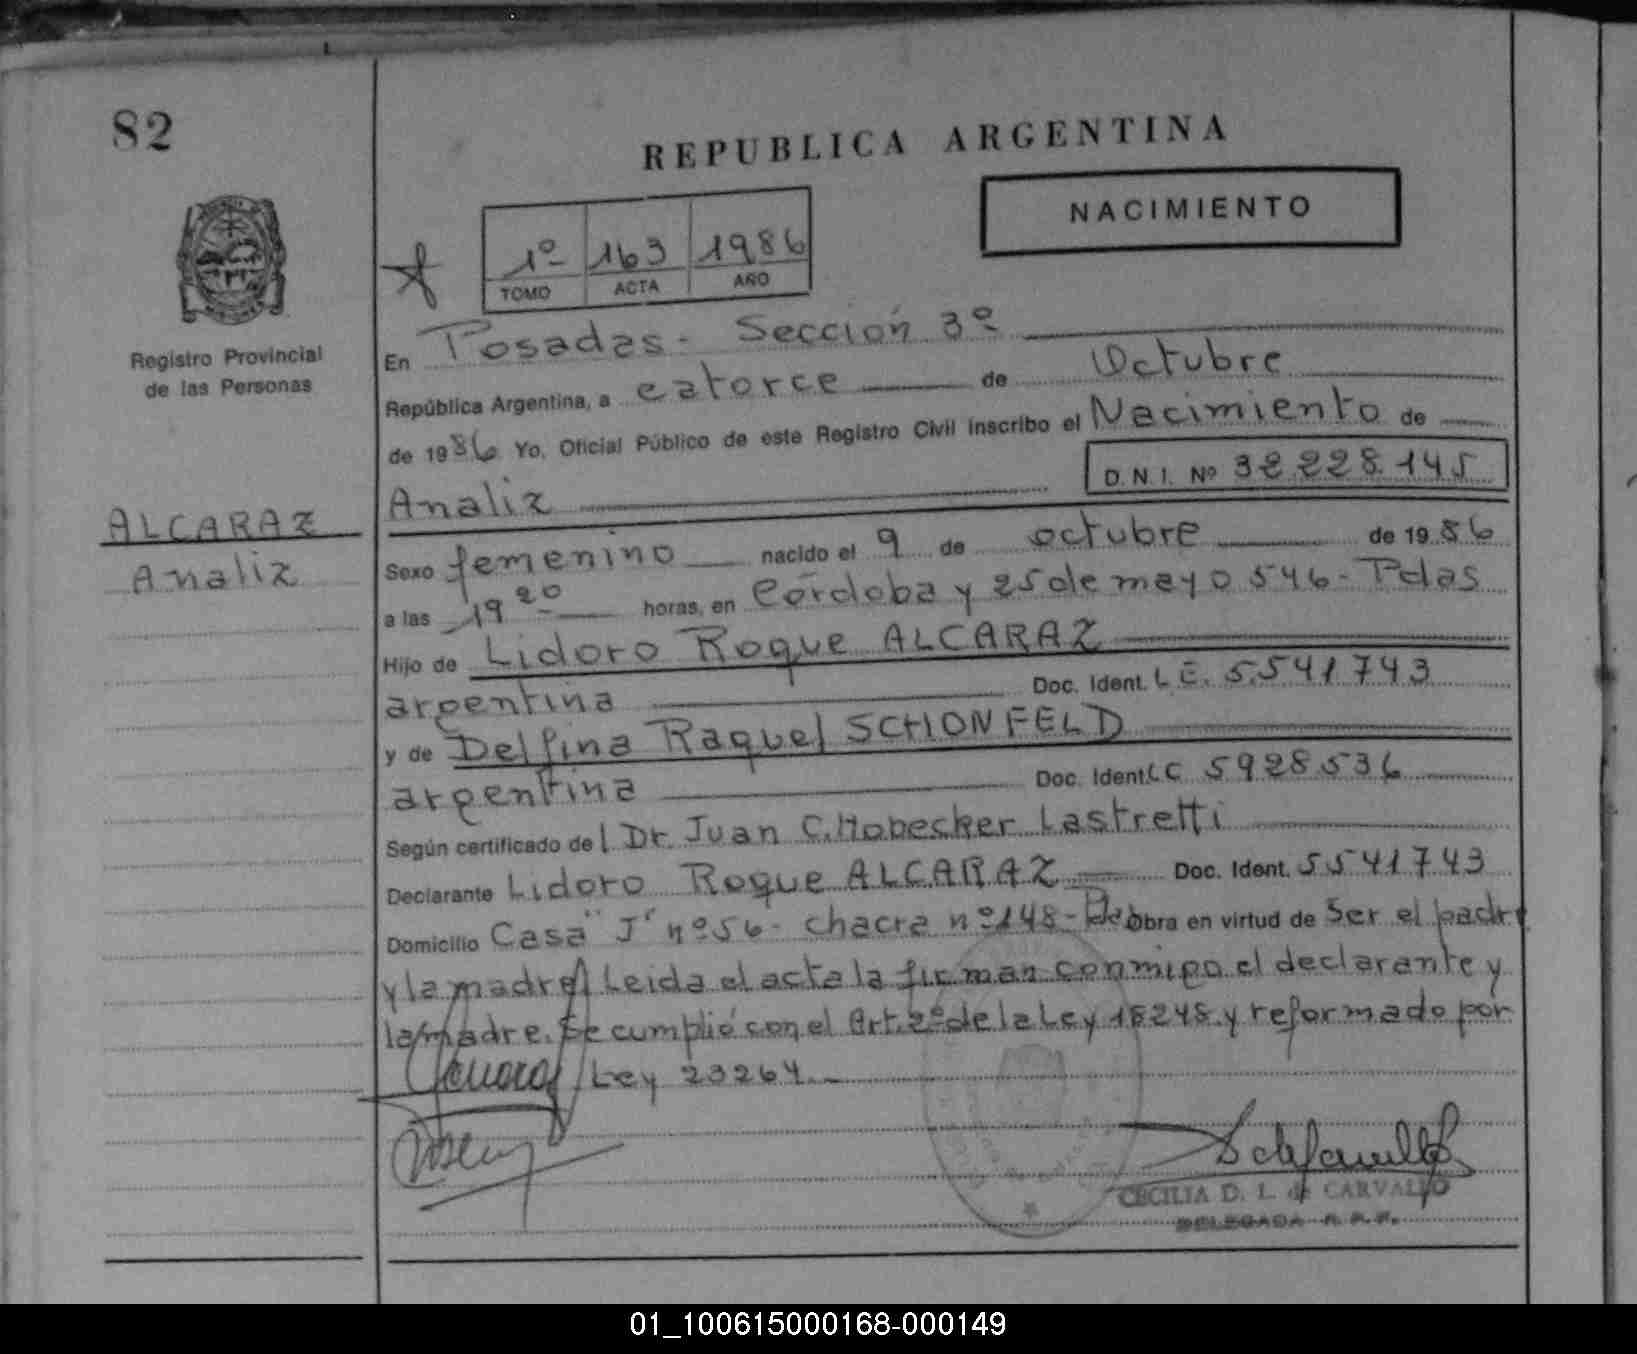 82
REPUBLICA ARGENTINA
NACIMIENTO
1º 163 1986
TOMO ACTA AÑO
Registro Provincial
de las Personas
En Posadas - Sección 3º
República Argentina, a catorce de Octubre
de 1986 Yo, Oficial Público de este Registro Civil inscribo el Nacimiento de
D. N. I. Nº 32.228.145
Analiz
ALCARAZ
Analiz
Sexo femenino nacido el 9 de octubre de 1986
a las 19 20 horas, en Córdoba y 25 de mayo 546 - Pdas
Hijo de Lidoro Roque ALCARAZ
argentina Doc. Ident. L E. 5.541743
y de Delfina Raquel SCHONFELD
argentina Doc. Ident. LC 5928536
Según certificado del Dr. Juan C. Hobecker Lastretti
Declarante Lidoro Roque ALCARAZ Doc. Ident. 5541743
Domicilio Casa "J" nº 56 - chacra nº 148 - Obra en virtud de Ser el padre
y la madre Leida el acta la firman conmigo el declarante y
la madre. Se cumplió con el Art. 2º de la Ley 18248 y reformado por
Ley 23264.
CECILIA D. L. de CARVALLO
DELEGADA R. P. P.
01_100615000168-000149